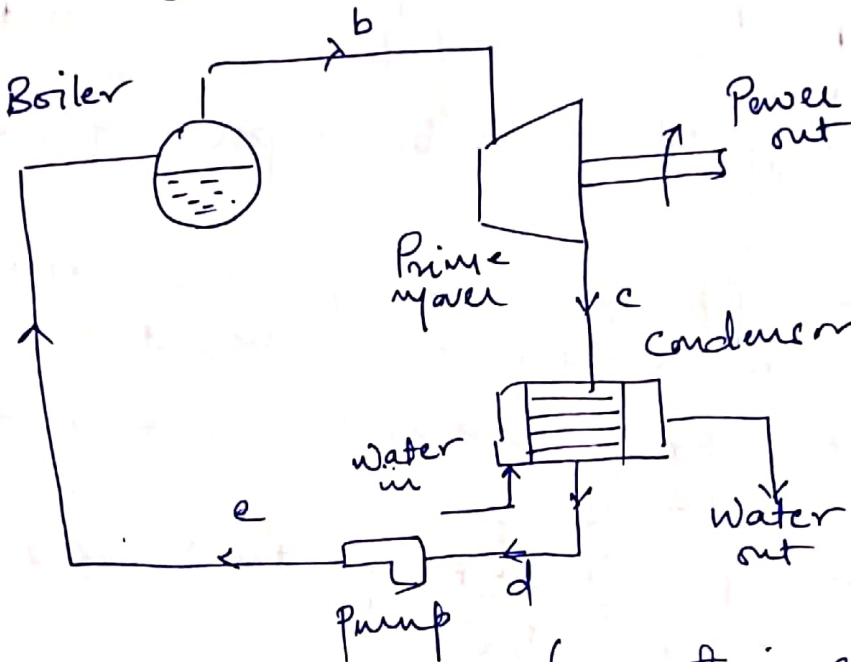 b
Boiler
Power
out
Prime
mover
c
Condensor
Water
in
e
Water
out
d
Pump